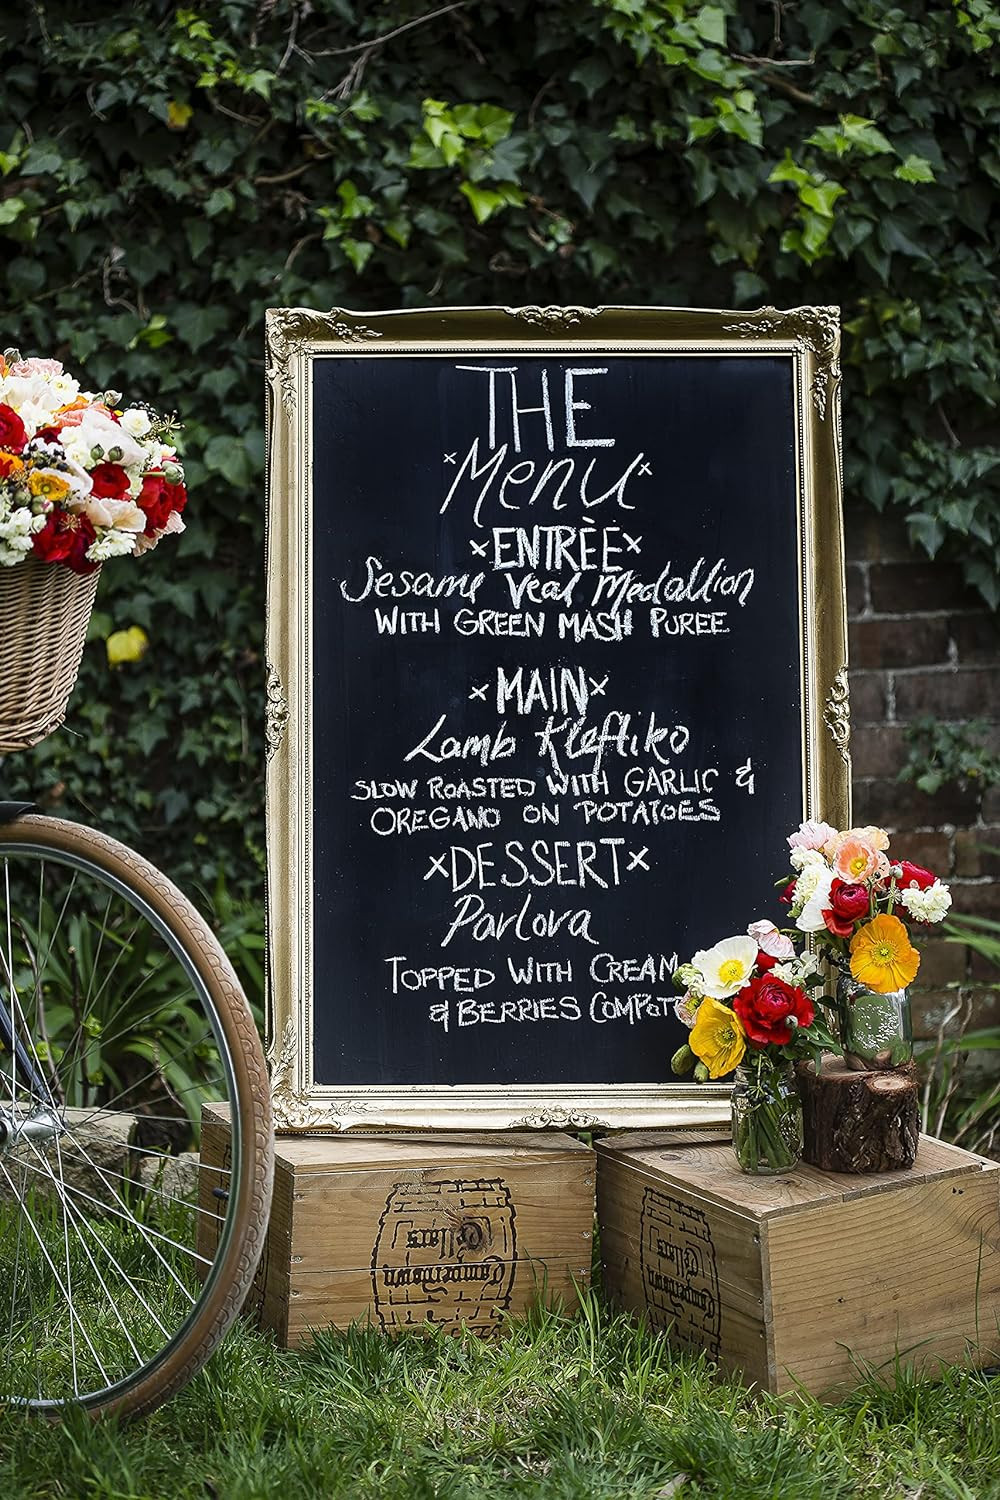 THE
Menu
ENTRÈE
Sesame Veal Medallion
WITH GREEN MASH PUREE
MAIN
Lamb Kleftiko
SLOW ROASTED WITH GARLIC &
OREGANO ON POTATOES
DESSERT
Pavlova
TOPPED WITH CREAM
& BERRIES COMPOT
Camperdown
Cellars
Camperdown
Cellars